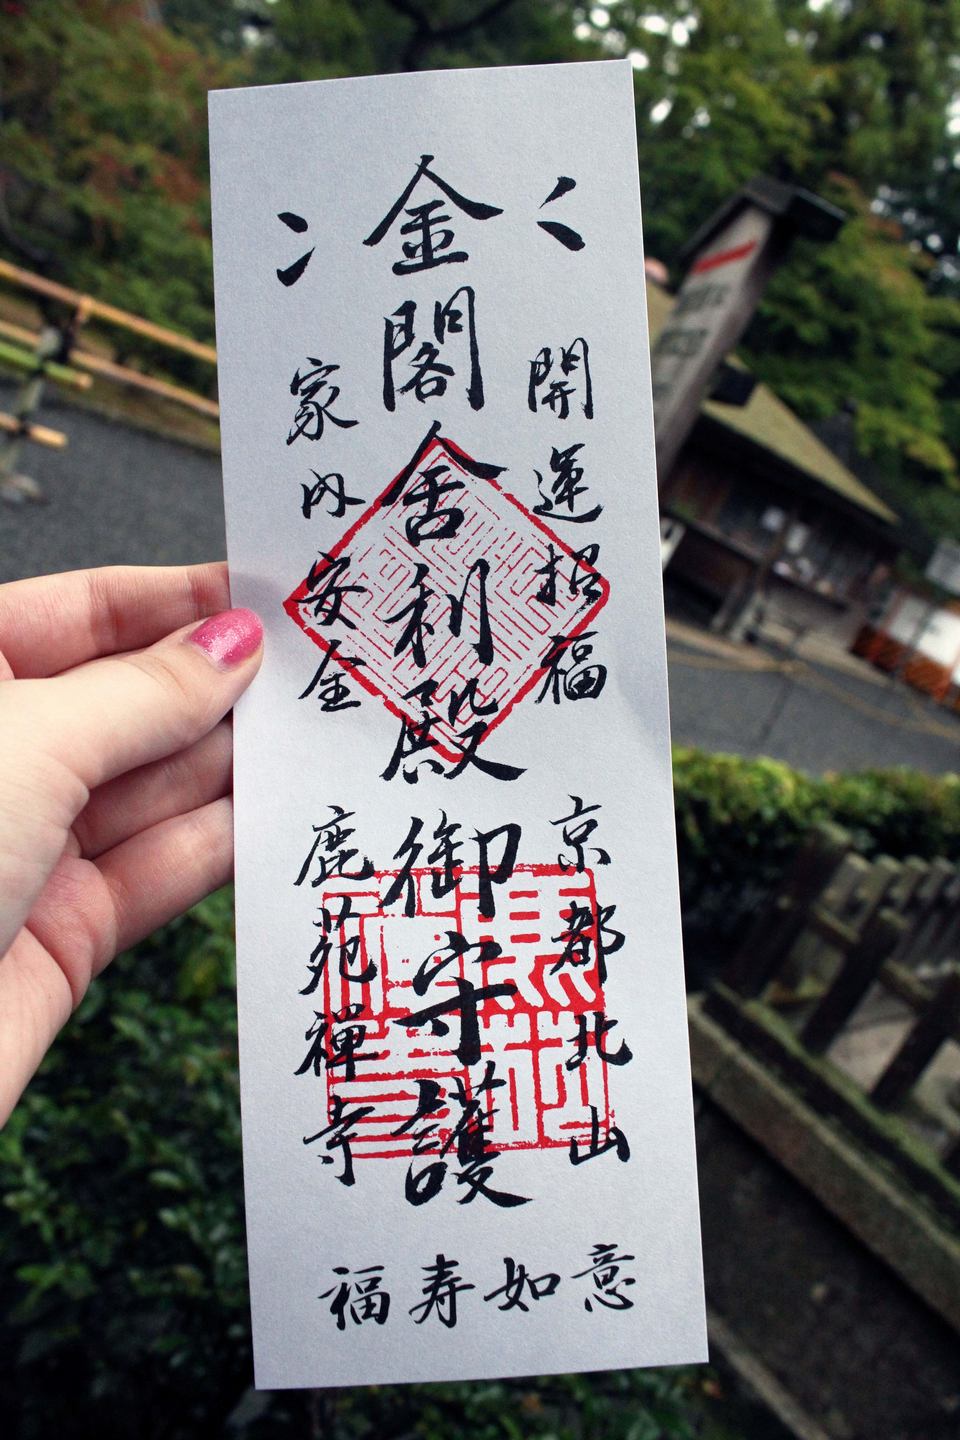 開運招福 京都北山
金閣舎利殿御守護
家内安全 鹿苑禪寺
福寿如意